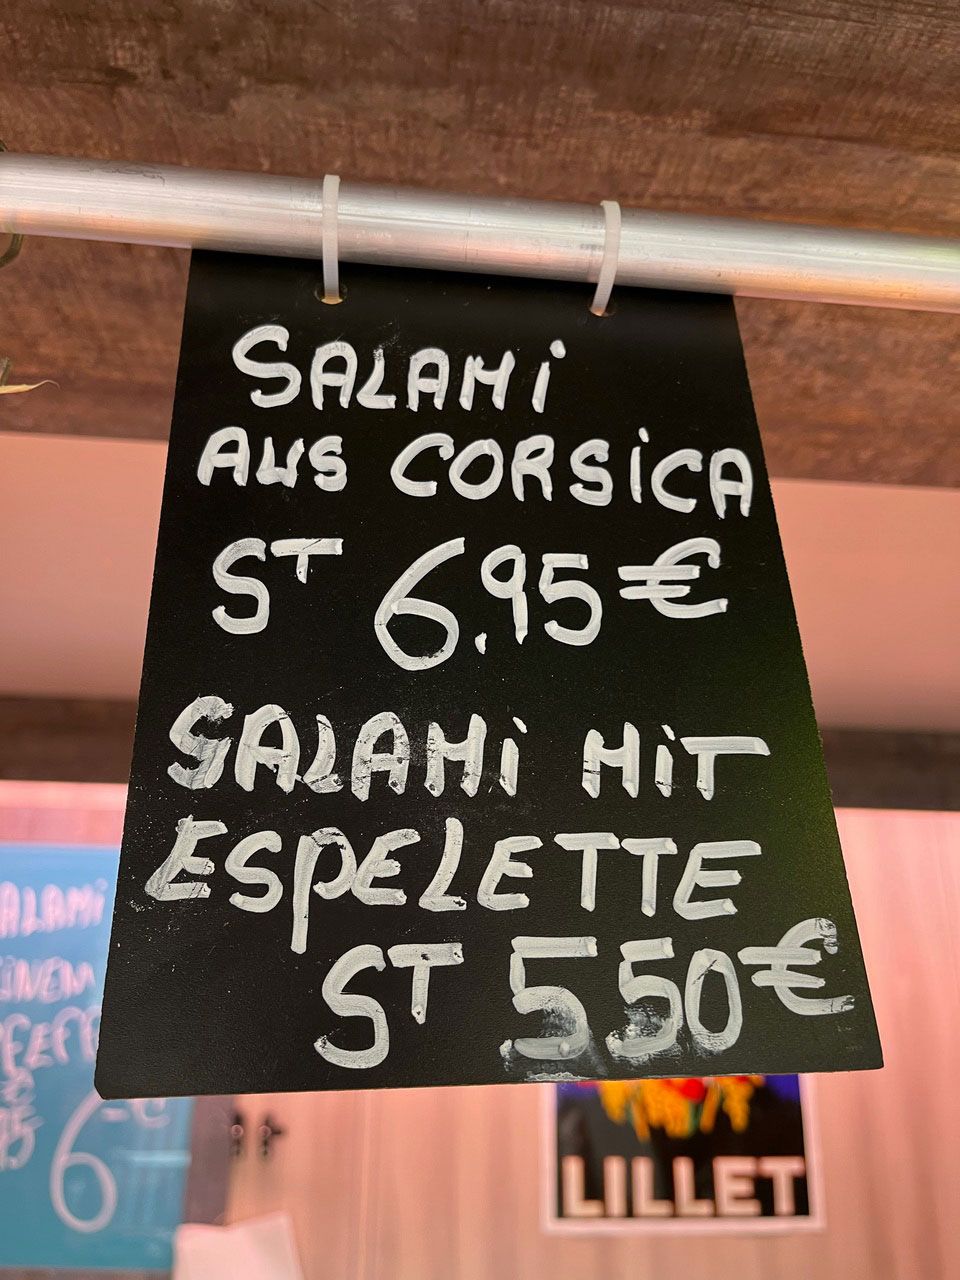 SALAMi
AUS CORSiCA
ST 6.95 €
SALAMi MiT
ESPELETTE
ST 5 50 €
ALAMi
6
LILLET